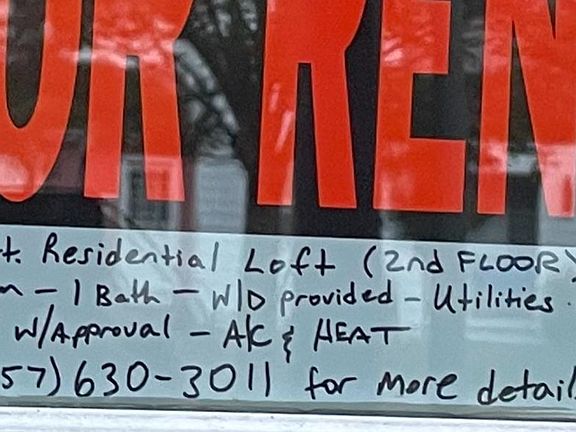 OR REN
t. Residential Loft (2nd FLOOR)
m - 1 Bath - W/D provided - Utilities
W/Approval - A/C & HEAT
57) 630-3011 for more detail